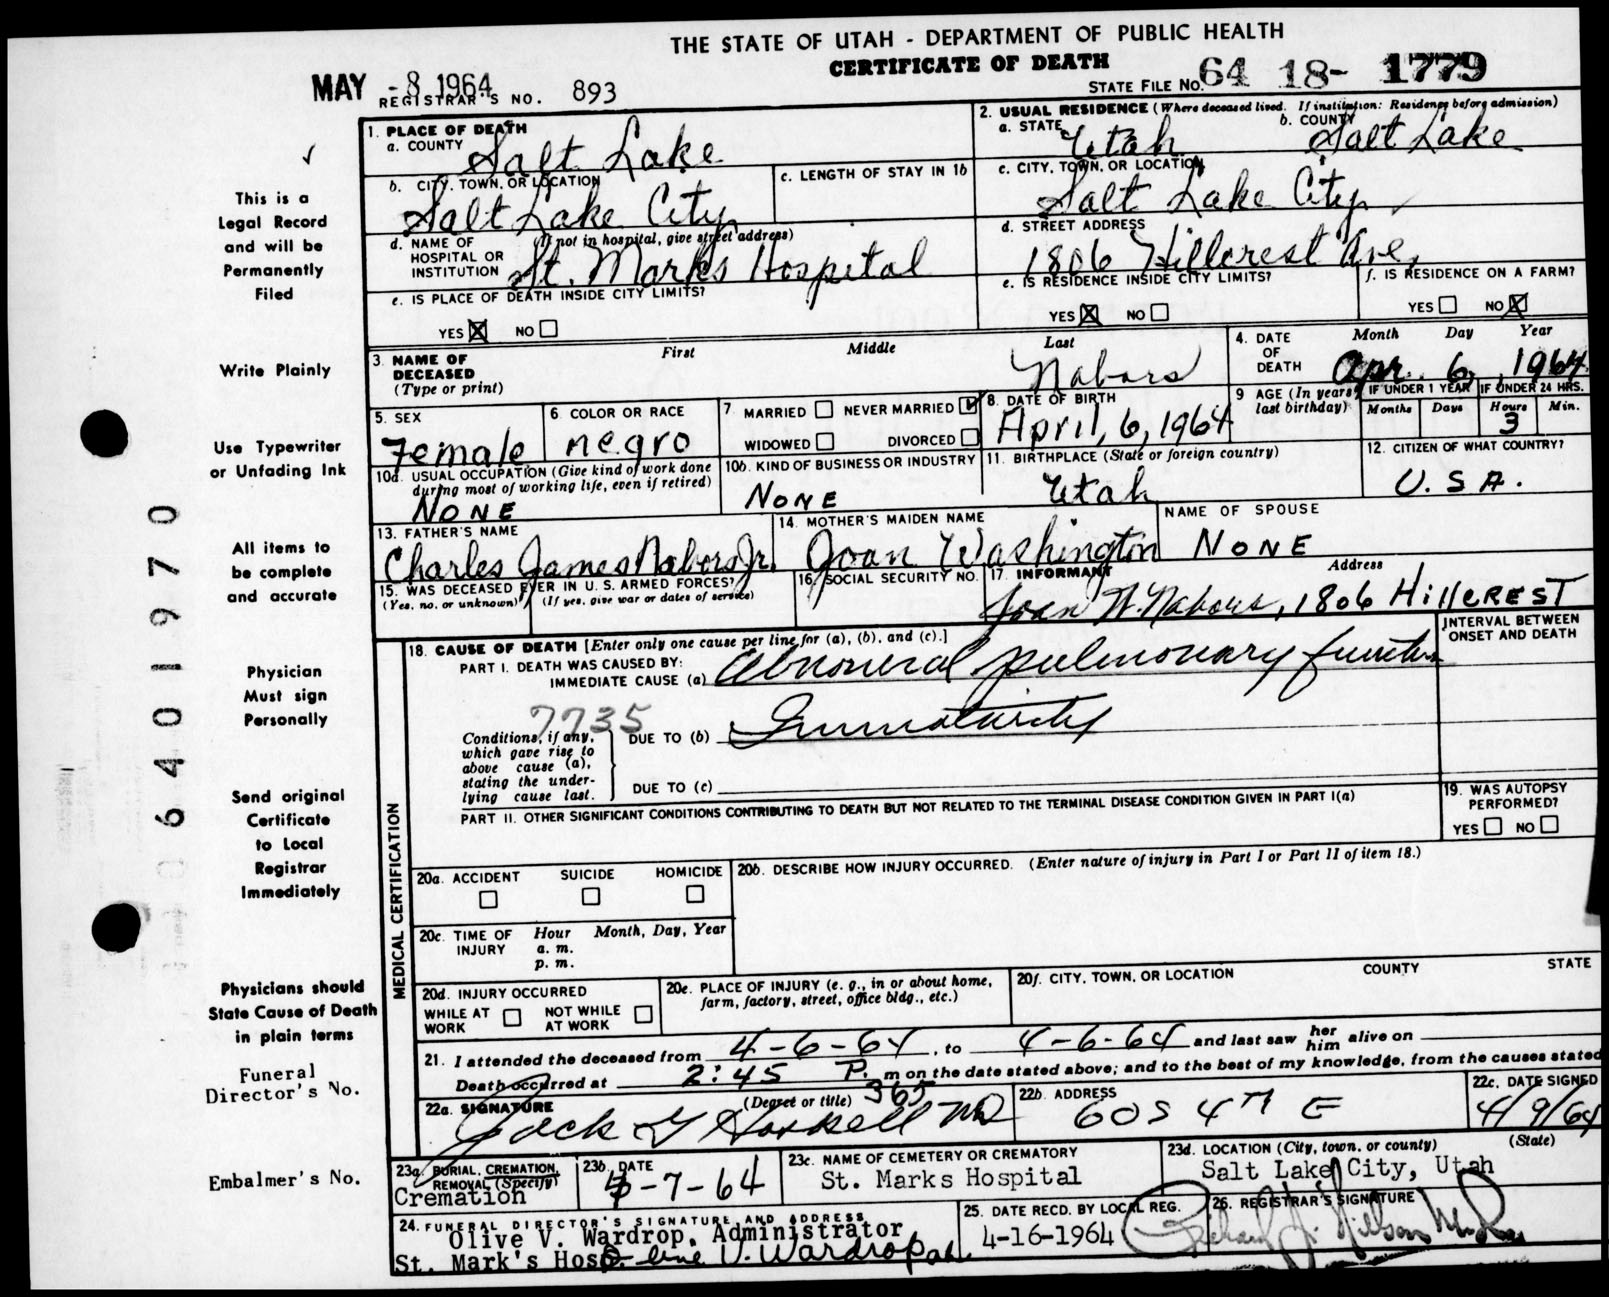 THE STATE OF UTAH - DEPARTMENT OF PUBLIC HEALTH
CERTIFICATE OF DEATH
MAY - 8 1964
REGISTRAR'S NO. 893
STATE FILE NO. 64 18- 1779
1. PLACE OF DEATH
a. COUNTY Salt Lake
2. USUAL RESIDENCE (Where deceased lived. If institution: Residence before admission)
a. STATE Utah b. COUNTY Salt Lake
b. CITY, TOWN, OR LOCATION Salt Lake City
c. LENGTH OF STAY IN 1b
c. CITY, TOWN, OR LOCATION Salt Lake City
d. NAME OF HOSPITAL OR INSTITUTION (If not in hospital, give street address) St. Marks Hospital
d. STREET ADDRESS 1806 Hillcrest Ave,
e. IS PLACE OF DEATH INSIDE CITY LIMITS?
YES NO
e. IS RESIDENCE INSIDE CITY LIMITS?
YES NO
f. IS RESIDENCE ON A FARM?
YES NO
3. NAME OF DECEASED (Type or print)
First Middle Last
Nabors
4. DATE OF DEATH Month Day Year
Apr. 6, 1964
5. SEX Female
6. COLOR OR RACE negro
7 MARRIED NEVER MARRIED
WIDOWED DIVORCED
8. DATE OF BIRTH April, 6, 1964
9 AGE (In years last birthday)
IF UNDER 1 YEAR IF UNDER 24 HRS.
Months Days Hours Min.
3
10a. USUAL OCCUPATION (Give kind of work done during most of working life, even if retired)
NONE
10b. KIND OF BUSINESS OR INDUSTRY
NONE
11. BIRTHPLACE (State or foreign country)
Utah
12. CITIZEN OF WHAT COUNTRY?
U.S.A.
13. FATHER'S NAME
Charles James Nabors Jr.
14. MOTHER'S MAIDEN NAME
Joan Washington
NAME OF SPOUSE
NONE
15. WAS DECEASED EVER IN U. S. ARMED FORCES?
(Yes, no, or unknown) (If yes, give war or dates of service)
16. SOCIAL SECURITY NO.
17. INFORMANT Address
Joan W. Nabors, 1806 HillCREST
MEDICAL CERTIFICATION
18. CAUSE OF DEATH [Enter only one cause per line for (a), (b), and (c).]
INTERVAL BETWEEN ONSET AND DEATH
PART I. DEATH WAS CAUSED BY:
IMMEDIATE CAUSE (a) Abnormal pulmonary function
7735
Conditions, if any, which gave rise to above cause (a), stating the underlying cause last.
DUE TO (b) Immaturity
DUE TO (c)
PART II. OTHER SIGNIFICANT CONDITIONS CONTRIBUTING TO DEATH BUT NOT RELATED TO THE TERMINAL DISEASE CONDITION GIVEN IN PART I(a)
19. WAS AUTOPSY PERFORMED?
YES NO
20a. ACCIDENT SUICIDE HOMICIDE
20b. DESCRIBE HOW INJURY OCCURRED. (Enter nature of injury in Part I or Part II of item 18.)
20c. TIME OF INJURY Hour Month, Day, Year
a. m.
p. m.
20d. INJURY OCCURRED
WHILE AT WORK NOT WHILE AT WORK
20e. PLACE OF INJURY (e. g., in or about home, farm, factory, street, office bldg., etc.)
20f. CITY, TOWN, OR LOCATION COUNTY STATE
21. I attended the deceased from 4-6-64, to 4-6-64 and last saw her him alive on
Death occurred at 2:45 P. m on the date stated above; and to the best of my knowledge, from the causes stated
22a. SIGNATURE (Degree or title) 365
Jack MD
22b. ADDRESS
60 S 4TH E
22c. DATE SIGNED
4/9/64
23a. BURIAL, CREMATION, REMOVAL (Specify)
Cremation
23b. DATE
4-7-64
23c. NAME OF CEMETERY OR CREMATORY
St. Marks Hospital
23d. LOCATION (City, town, or county) (State)
Salt Lake City, Utah
24. FUNERAL DIRECTOR'S SIGNATURE AND ADDRESS
Olive V. Wardrop, Administrator
St. Mark's Hosp.
25. DATE RECD. BY LOCAL REG.
4-16-1964
26. REGISTRAR'S SIGNATURE
This is a
Legal Record
and will be
Permanently
Filed
Write Plainly
Use Typewriter
or Unfading Ink
All items to
be complete
and accurate
Physician
Must sign
Personally
Send original
Certificate
to Local
Registrar
Immediately
Physicians should
State Cause of Death
in plain terms
Funeral
Director's No.
Embalmer's No.
0 6 4 0 1 9 7 0